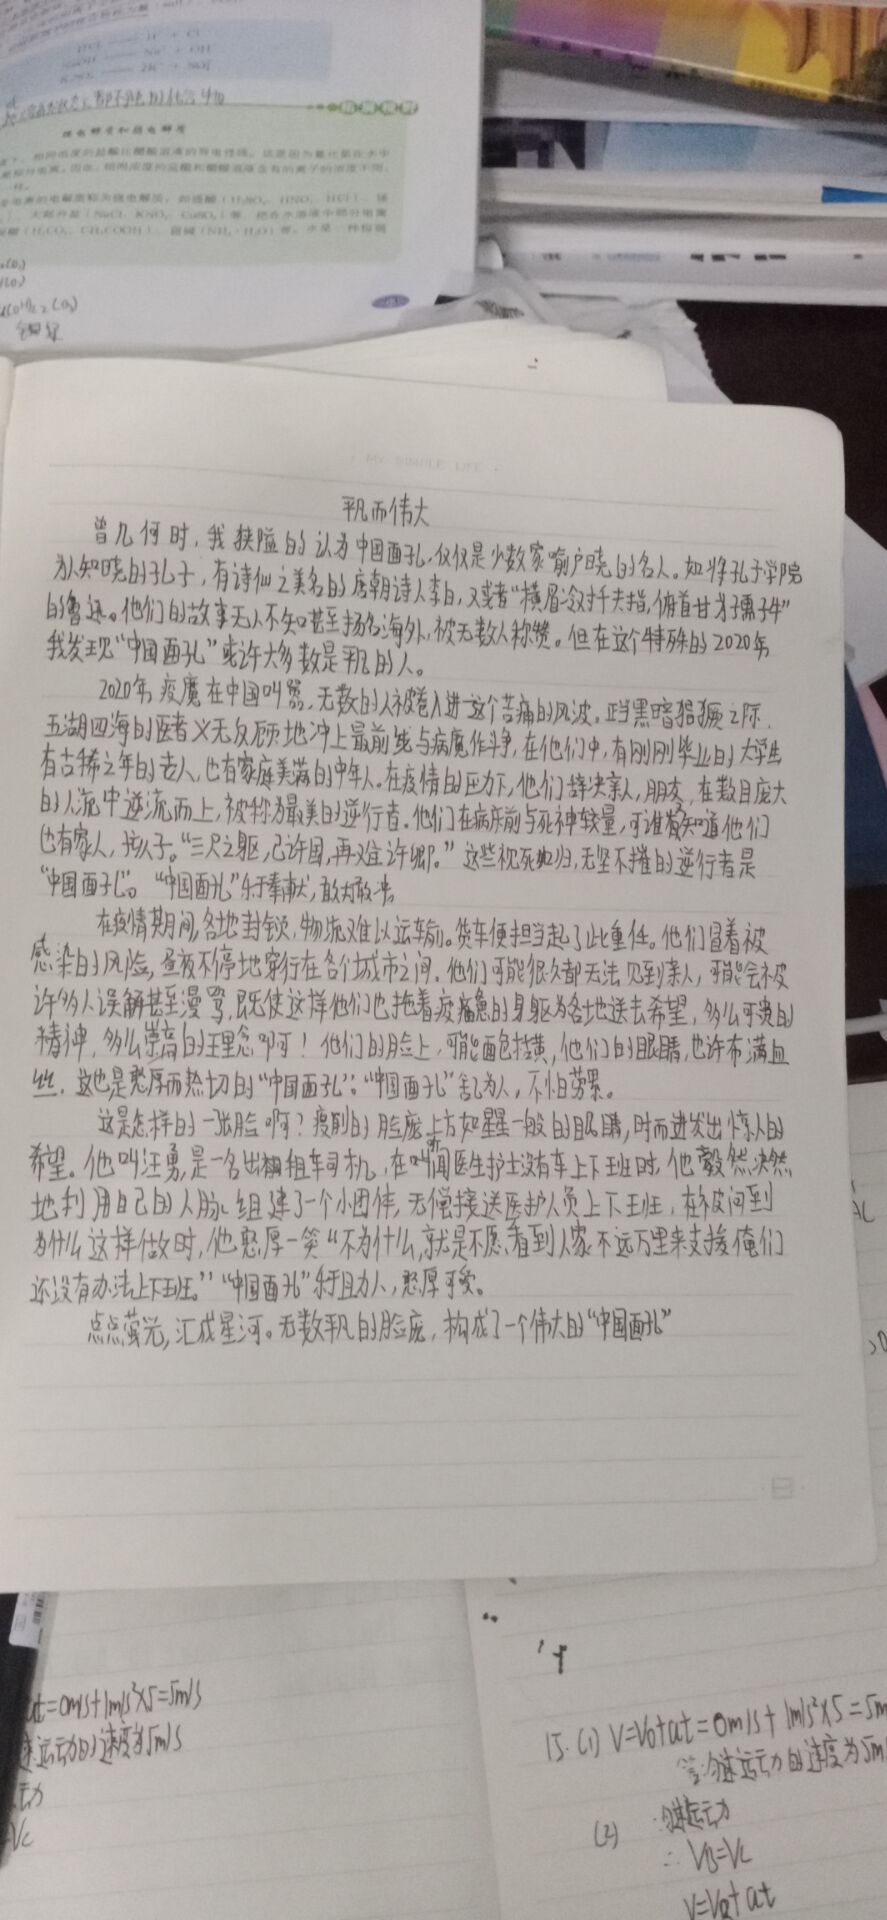 强电解质和弱电解质
MY SIMPLE LIFE
平凡而伟大
曾几何时，我狭隘的认为中国面孔，仅仅是少数家喻户晓的名人。如将孔子学院
为人知晓的孔子，有诗仙之美名的唐朝诗人李白，又或者“横眉冷对千夫指，俯首甘为孺子牛”
的鲁迅。他们的故事无人不知甚至扬名海外，被无数人称赞。但在这个特殊的2020年，
我发现“中国面孔”或许大多数是平凡的人。
2020年，疫魔在中国叫嚣，无数的人被卷入进这个苦痛的风波。正当黑暗猖獗之际，
五湖四海的医者义无反顾地冲上最前线与病魔作斗争，在他们中，有刚刚毕业的大学生
有古稀之年的老人，也有家庭美满的中年人。在疫情的压力下，他们辞决亲人，朋友，在数目庞大
的人流中逆流而上，被称为最美的逆行者。他们在病床前与死神较量，可谁有知道他们
也有家人，孩子。“三尺之躯，已许国，再难许卿。”这些视死如归，无坚不摧的逆行者是
“中国面孔”。“中国面孔”乐于奉献，敢为敢当。
在疫情期间，各地封锁，物流难以运输。货车便担当起了此重任。他们冒着被
感染的风险，昼夜不停地穿行在各个城市之间。他们可能很久都无法见到亲人，可能会被
许多人误解甚至漫骂，既使这样他们也拖着疲惫的身躯为各地送去希望，多么可贵的
精神，多么崇高的理念啊！他们的脸上，可能面色枯黄，他们的眼睛，也许布满血
丝，这也是憨厚而热切的“中国面孔”；“中国面孔”舍己为人，不怕劳累。
这是怎样的一张脸啊？瘦削的脸庞上方如星星一般的眼睛，时而迸发出惊人的
希望。他叫汪勇，是一名出租车司机，在听闻医生护士没有车上下班时，他毅然决然
地利用自己的人脉组建了一个小团体，无偿接送医护人员上下班，在被问到
为什么这样做时，他憨厚一笑“不为什么，就是不愿看到人家不远万里来支援俺们
还没有办法上下班。”“中国面孔”乐于助人，憨厚可爱。
点点萤光，汇成星河。无数平凡的脸庞，构成了一个伟大的“中国面孔”
at=0m/s+1m/s²×5=5m/s
速运动的速度为5m/s
15.(1) V=V₀+at=0m/s+1m/s²×5=5m
答:匀速运动的速度为5m/
(2) ∵匀速运动
∴VB=VC
V=V₀+at